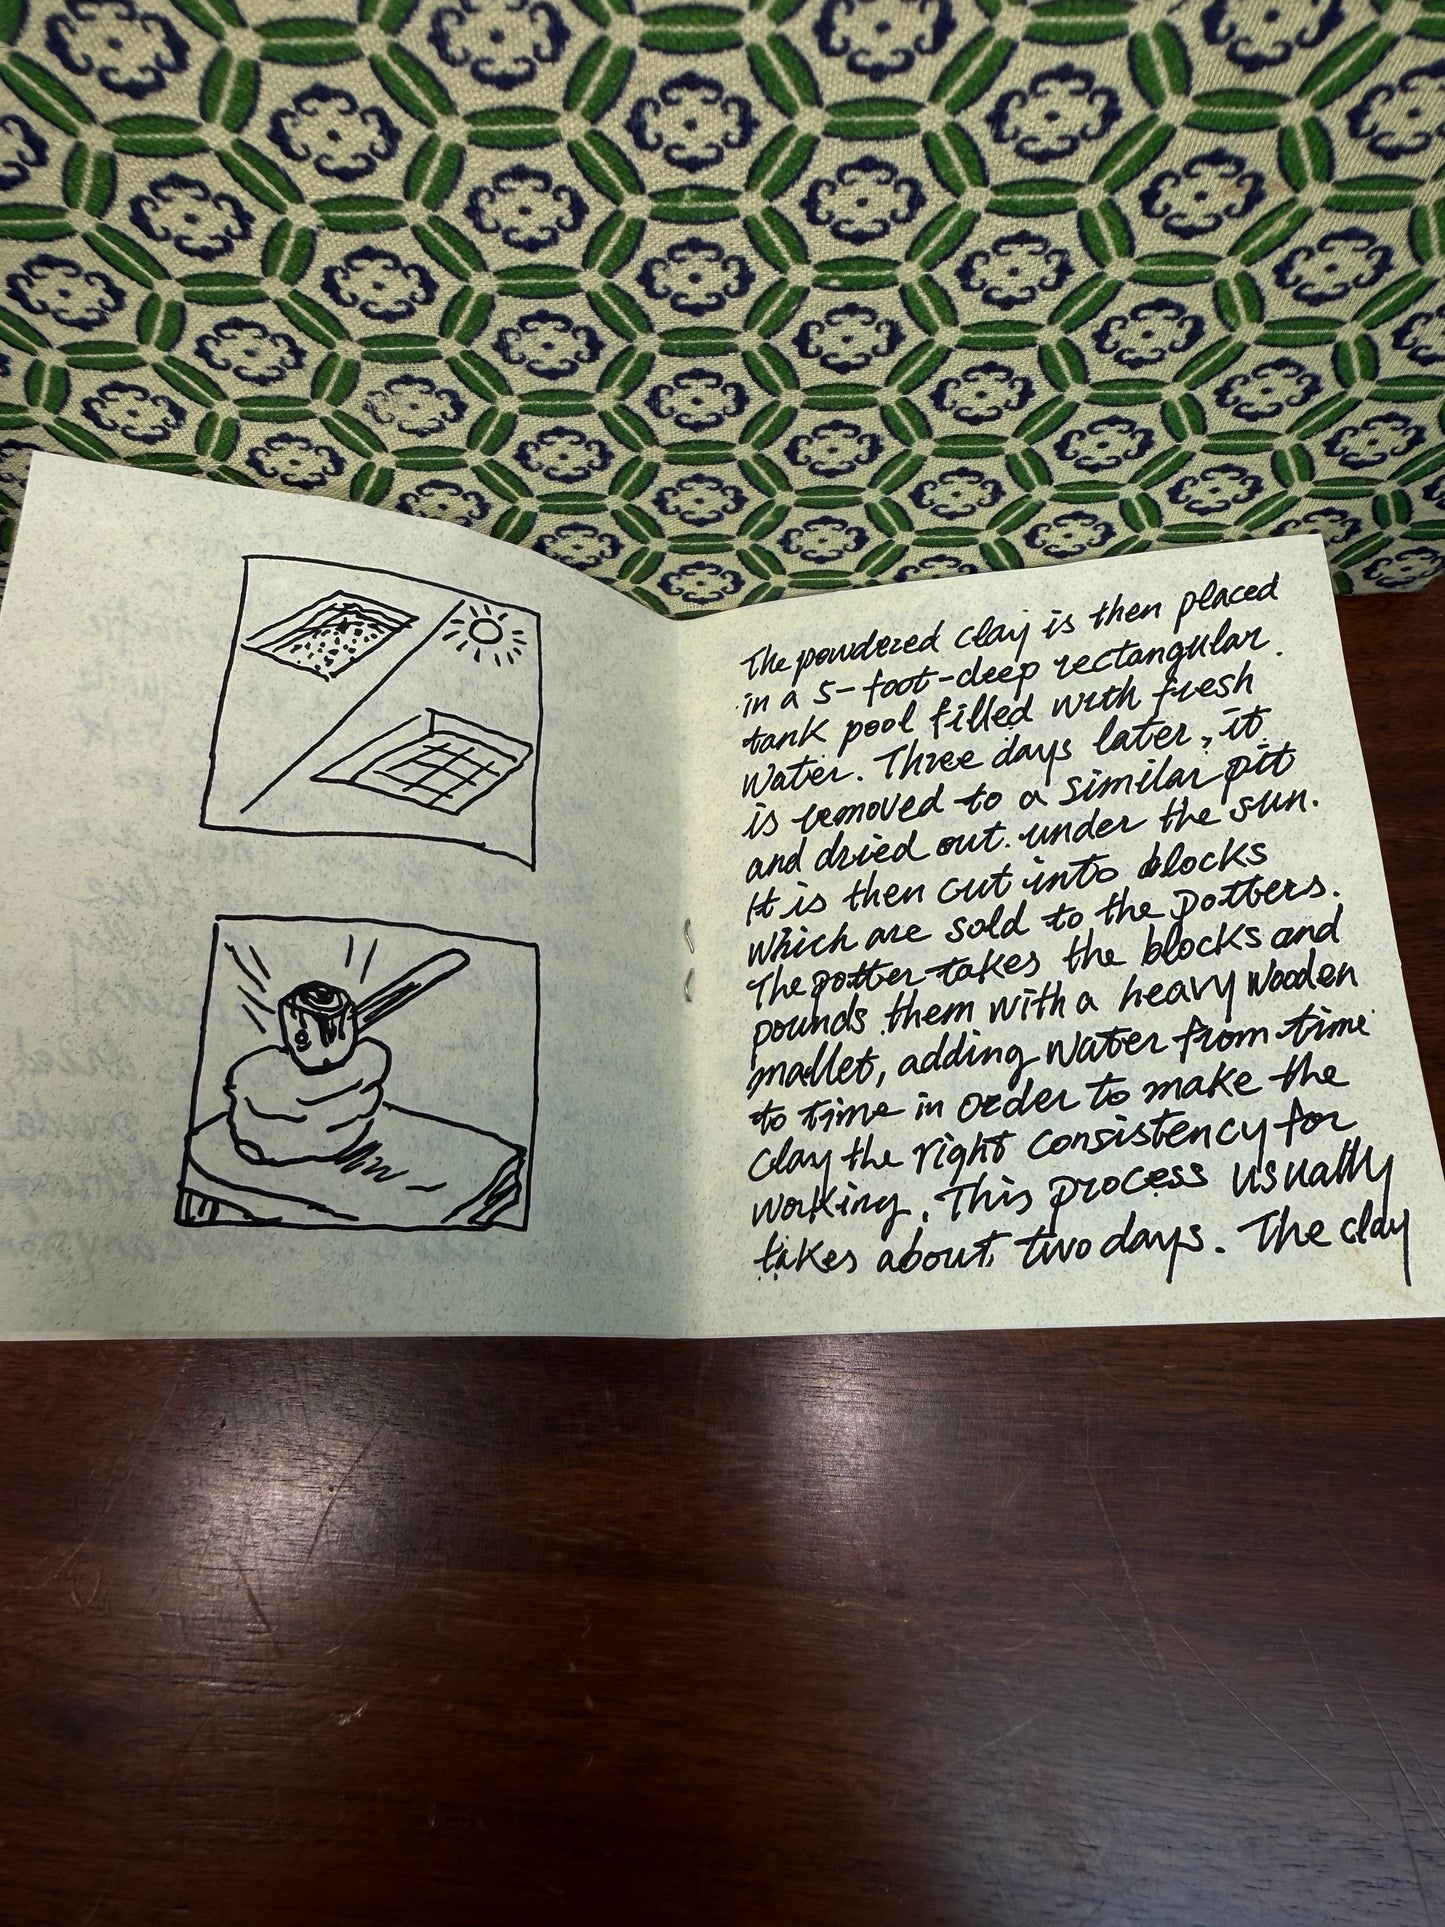 The powdered clay is then placed
in a 5-foot-deep rectangular
tank pool filled with fresh
Water. Three days later, it
is removed to a similar pit
and dried out under the sun.
It is then cut into blocks
which are sold to the potters.
The potter takes the blocks and
pounds them with a heavy wooden
mallet, adding water from time
to time in order to make the
clay the right consistency for
working. This process usually
takes about two days. The clay